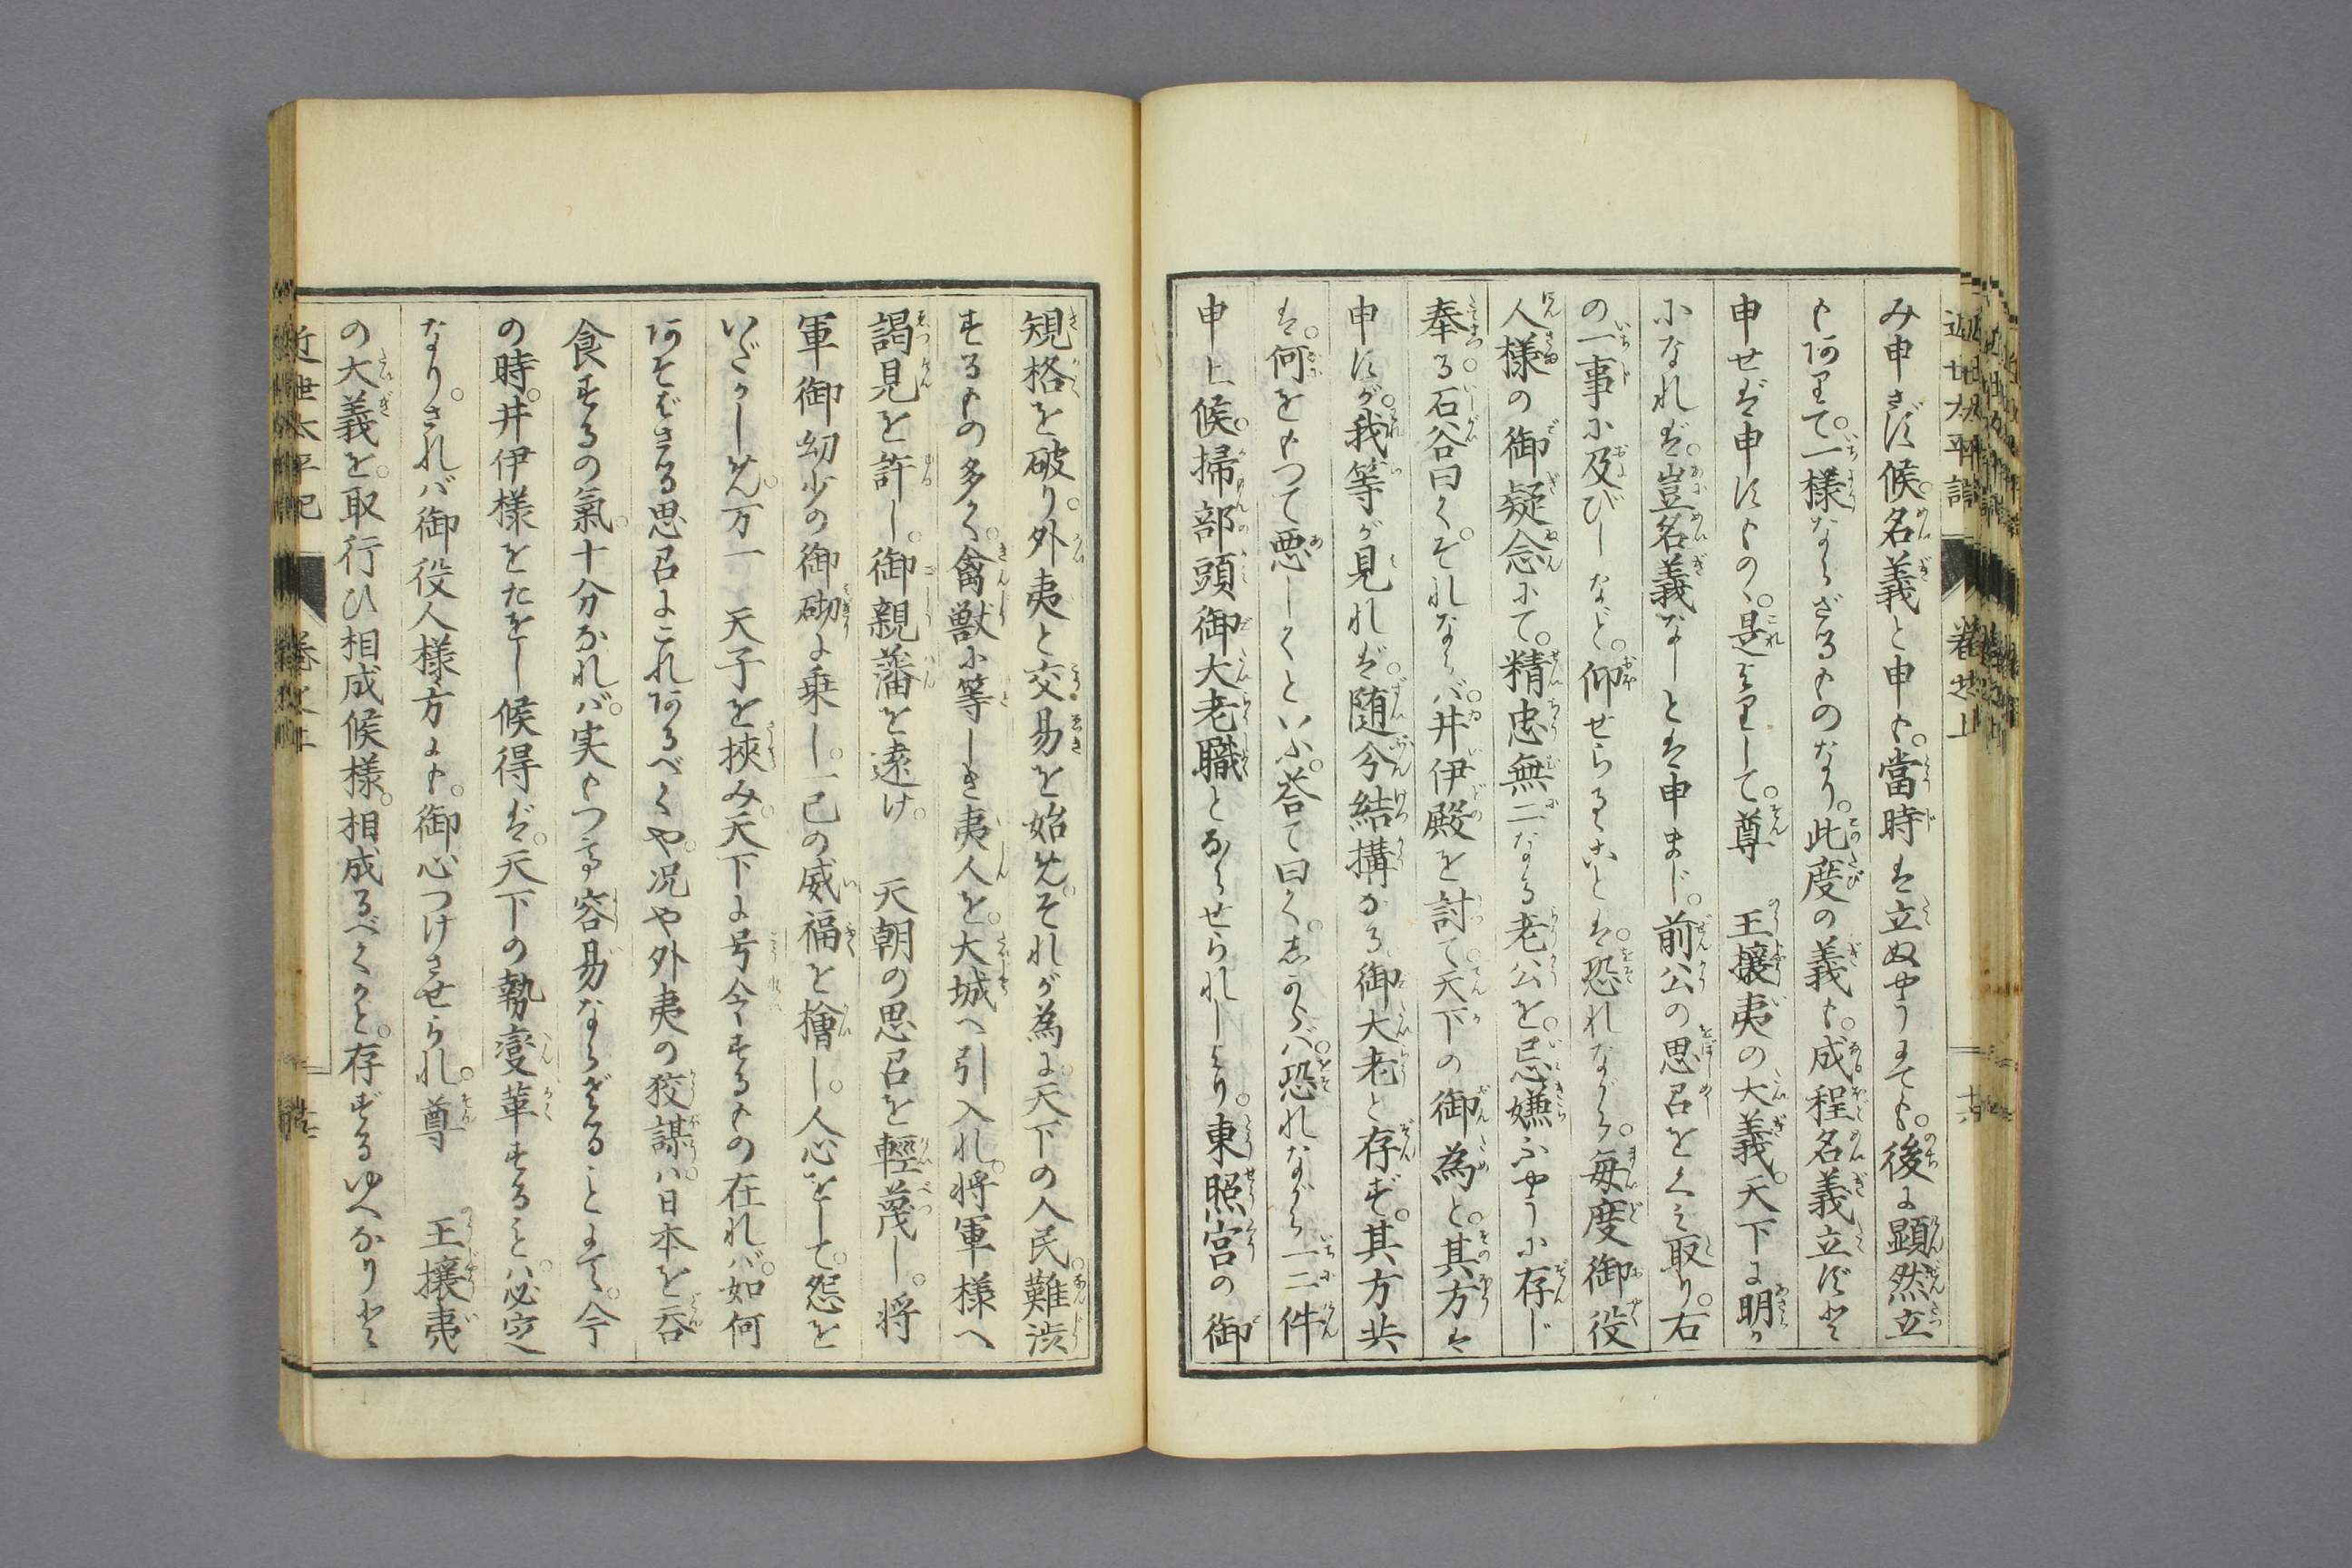 み申さず候。名義と申も。當時は立ぬやうにても。後に顕然立
もありて。一様ならざるものなり。此度の義も。成程名義立ずと
申せば申すものゝ。是よりして。尊　王攘夷の大義。天下に明か
になれば。豈名義なしとは申まじ。前公の思召をくみ取り。右
の一事に及びしなど。仰せらるゝことは。恐れながら。毎度御役
人様の御疑念にて。精忠無二なる老公を。忌嫌ふやうに存じ
奉る。石谷曰く。それならバ。井伊殿を討て。天下の御為と。其方は
申すが。我等が見れば。随分結構なる御大老と存ず。其方共
は。何をもつて悪しくといふ。荅て曰く。しからバ。恐れながら一二件
申上候。掃部頭御大老職とならせられしより。東照宮の御
規格を破り。外夷と交易を始め。それが為に。天下の人民。難渋
するもの多く。禽獣に等しき夷人を。大城へ引入れ。将軍様へ
謁見を許し。御親藩を遠け。　天朝の思召を輕蔑し。将
軍御幼少の御砌に乗し。一己の威福を檜し。人心をして。怨を
いだかしめ。万一　天子を挾み。天下に号令するもの在れバ。如何
あそばさるる思召にこれあるべくや。况や外夷の狡謀ハ。日本を呑
食するの氣。十分なれバ。実もつて容易ならざることにて。今
の時。井伊様をたをし候得ば。天下の勢。變革することハ。必定
なり。されバ御役人様方にも。御心つけさせられ。尊　王攘夷
の大義を。取行ひ相成候様。相成るべくかと。存ずるゆへなりと
近世太平記
巻之上